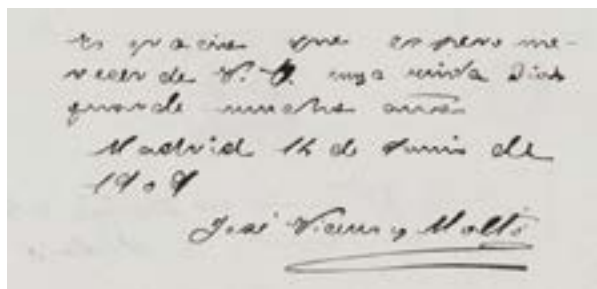 Es gracia que espero me-
recer de V. I. cuya vida Dios
guarde muchos años
Madrid 14 de Junio de
1909
José Vicens y Moltó